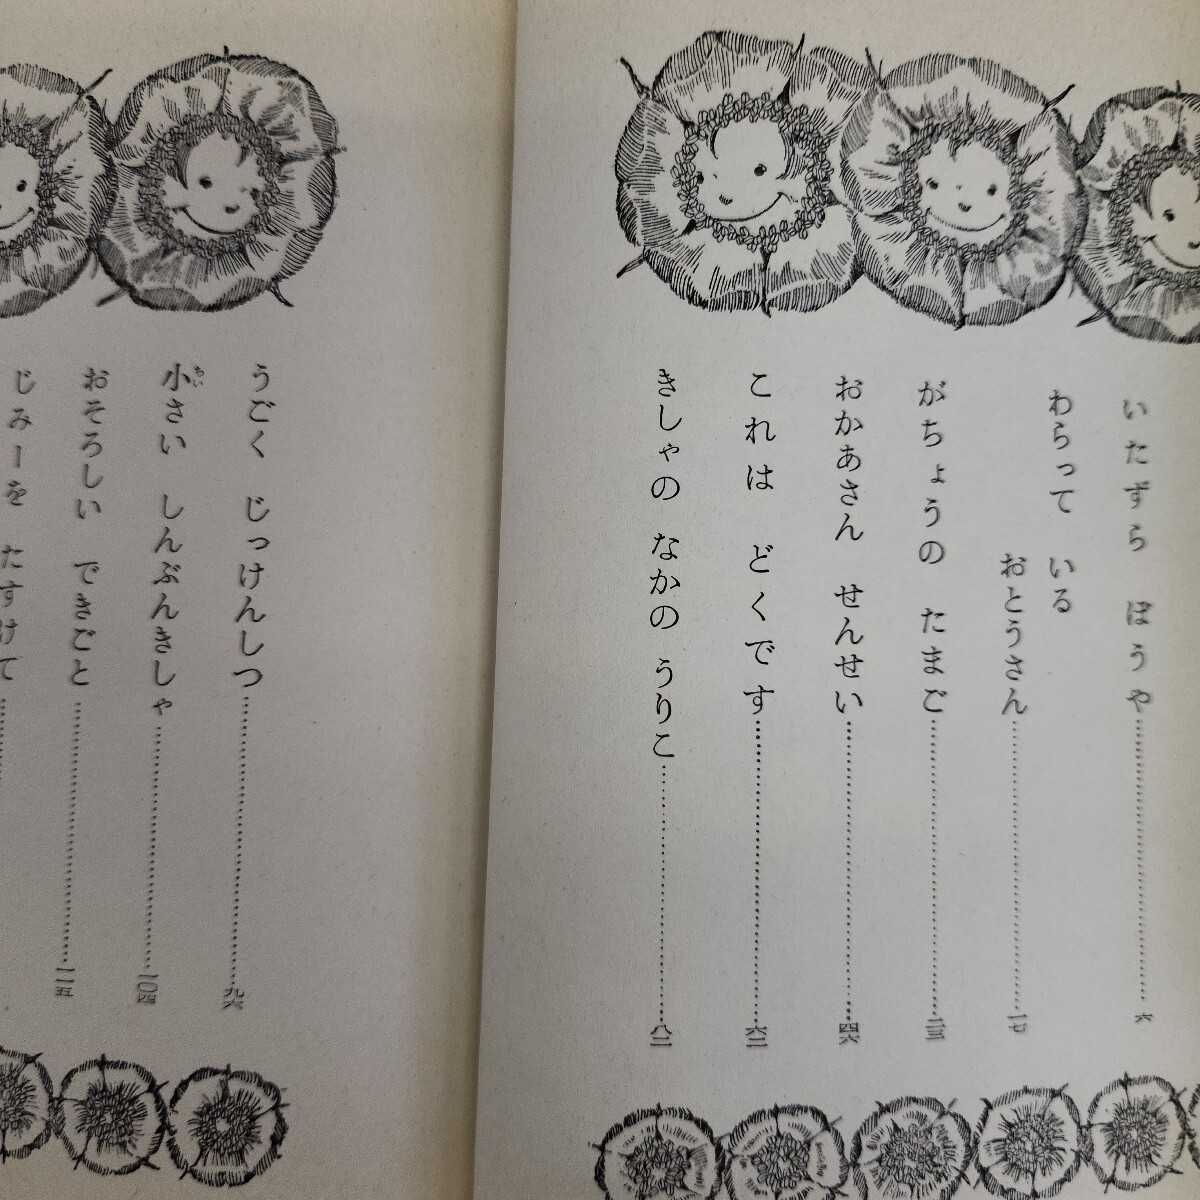 いたずら ぼうや……六
わらって いる
おとうさん……一七
がちょうの たまご……三三
おかあさん せんせい……四六
これは どくです……六二
きしゃの なかの うりこ……八二
うごく じっけんしつ……九六
小さい しんぶんきしゃ……一〇四
ちい
おそろしい できごと……一一五
じみーを たすけて